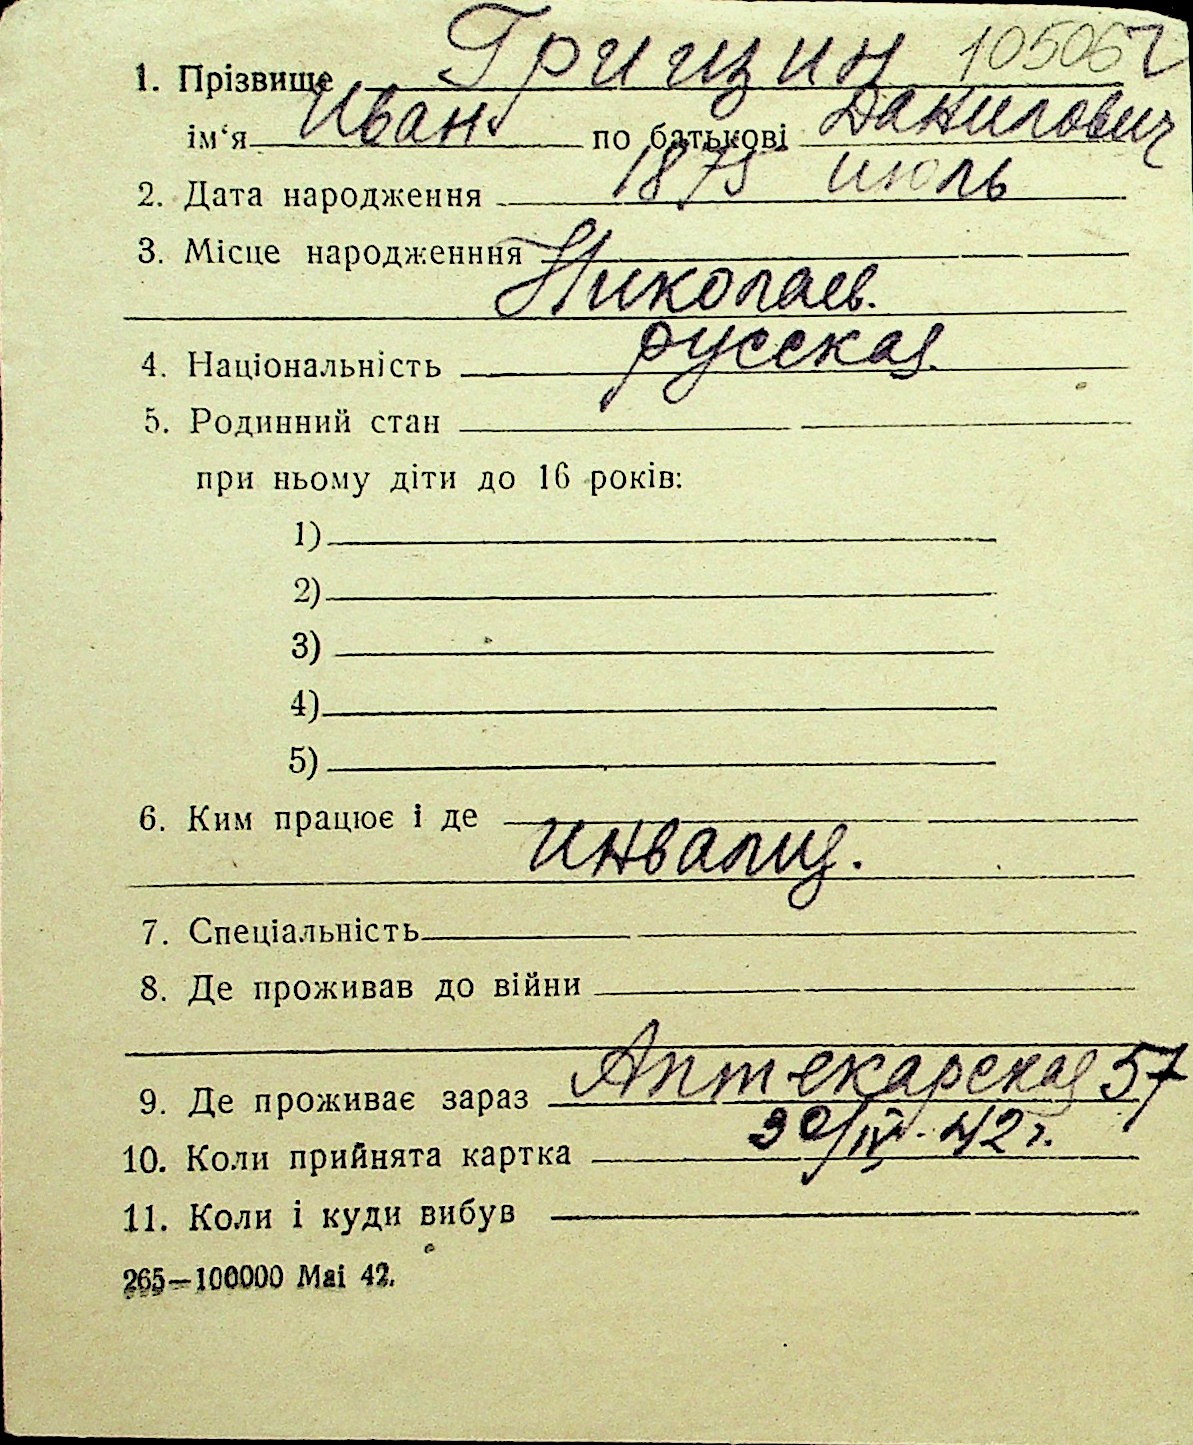 105057
1. Прізвище Грицин
ім‘я Иван по батькові Данилович
2. Дата народження 1875 июль
3. Місце народженння
Николаев.
4. Національність русская.
5. Родинний стан
при ньому діти до 16 років:
1)
2)
3)
4)
5)
6. Ким працює і де
инвалид.
7. Спеціальність
8. Де проживав до війни
9. Де проживає зараз Аптекарская 57
10. Коли прийнята картка 30/IV. 42 г.
11. Коли і куди вибув
265—100000 Mai 42.